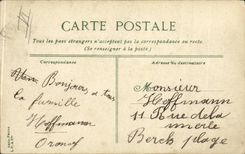 CARTE POSTALE
Tous les pays étrangers n'acceptent pas la correspondance au recto
(Se renseigner à la poste)
Correspondance
Adresse du destinataire
Bonjour a tous
la famille
Hoffmann
Monsieur
Hoffmann
11 Rue de la
Berck plage